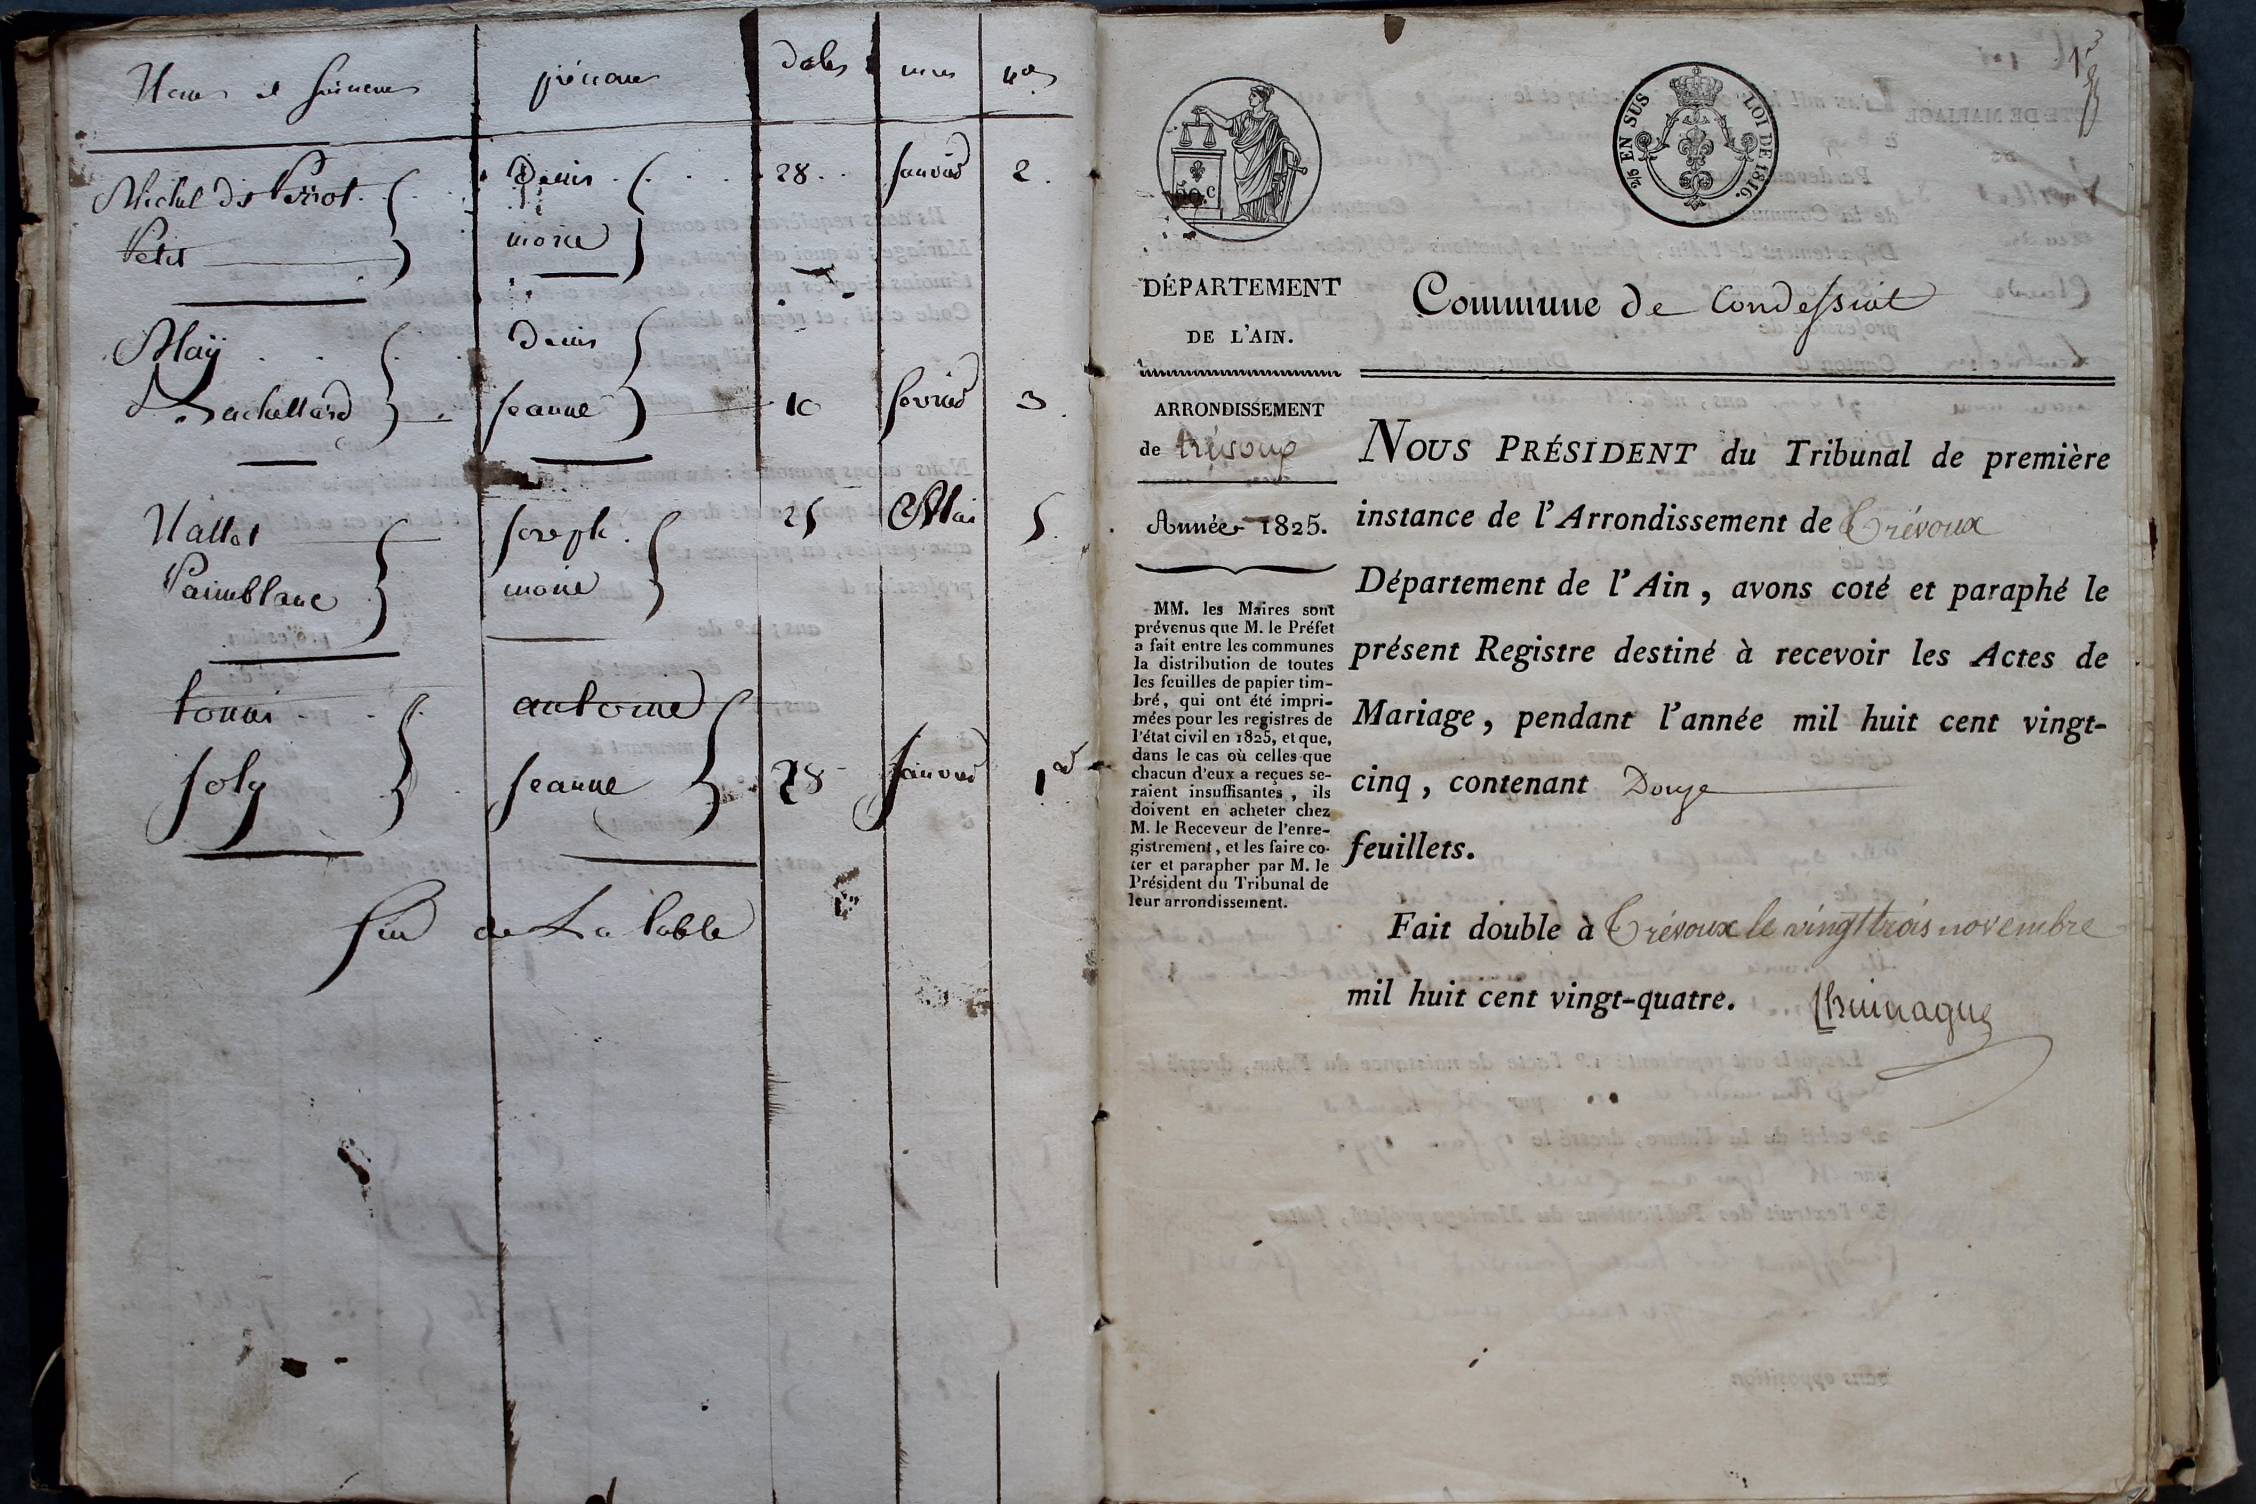 Noms et surnoms prénoms dates mois nos
Michel dit Perrot Denis 28 janvier 2
Petit marie
May Denis
Rachettard jeanne 10 fevrier 3
Nallet joseph 25 Mai 5
Painblanc marie
tonni antoine
joly jeanne 28 janvier 1er
fin de La table
50.c
2/5 EN SUS LOI DE 1816.
DÉPARTEMENT
DE L'AIN.
ARRONDISSEMENT
de trévoux
Année 1825.
MM. les Maires sont
prévenus que M. le Préfet
a fait entre les communes
la distribution de toutes
les feuilles de papier tim-
bré, qui ont été impri-
mées pour les registres de
l'état civil en 1825, et que,
dans le cas où celles que
chacun d'eux a reçues se-
raient insuffisantes, ils
doivent en acheter chez
M. le Receveur de l'enre-
gistrement, et les faire co-
ter et parapher par M. le
Président du Tribunal de
leur arrondissement.
Commune de Condessiat
NOUS PRÉSIDENT du Tribunal de première
instance de l'Arrondissement de Trévoux
Département de l'Ain, avons coté et paraphé le
présent Registre destiné à recevoir les Actes de
Mariage, pendant l'année mil huit cent vingt-
cinq, contenant Douze
feuillets.
Fait double à Trévoux le vingt trois novembre
mil huit cent vingt-quatre.